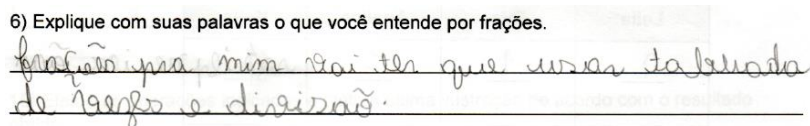 6) Explique com suas palavras o que você entende por frações.
fração pra mim vai ter que usar tabuada
de vezes e divisão.